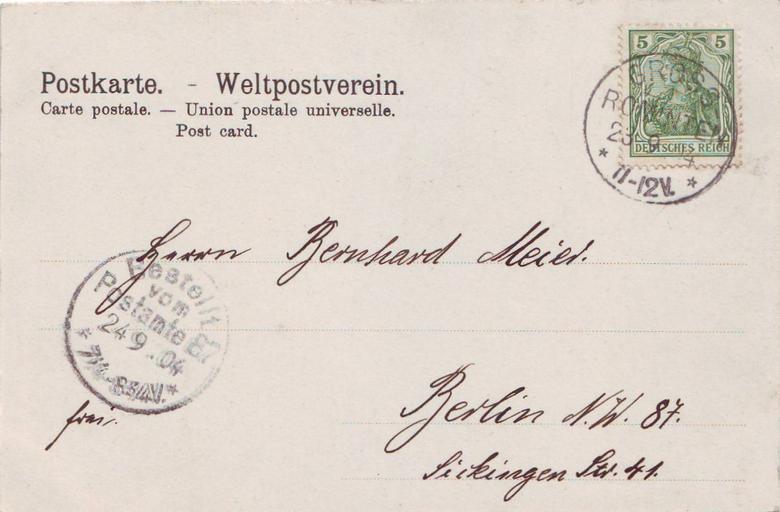 Postkarte. - Weltpostverein.
Carte postale. — Union postale universelle.
Post card.
5 5
DEUTSCHES REICH
GROSS
ROMINTEN
23 9 4
* 11-12V. *
Herrn Bernhard Meier.
Bestellt
vom
Postamte 87
24 9 .04
* 7¼-8¾V. *
frei.
Berlin N.W. 87.
Sickingen Str. 41.